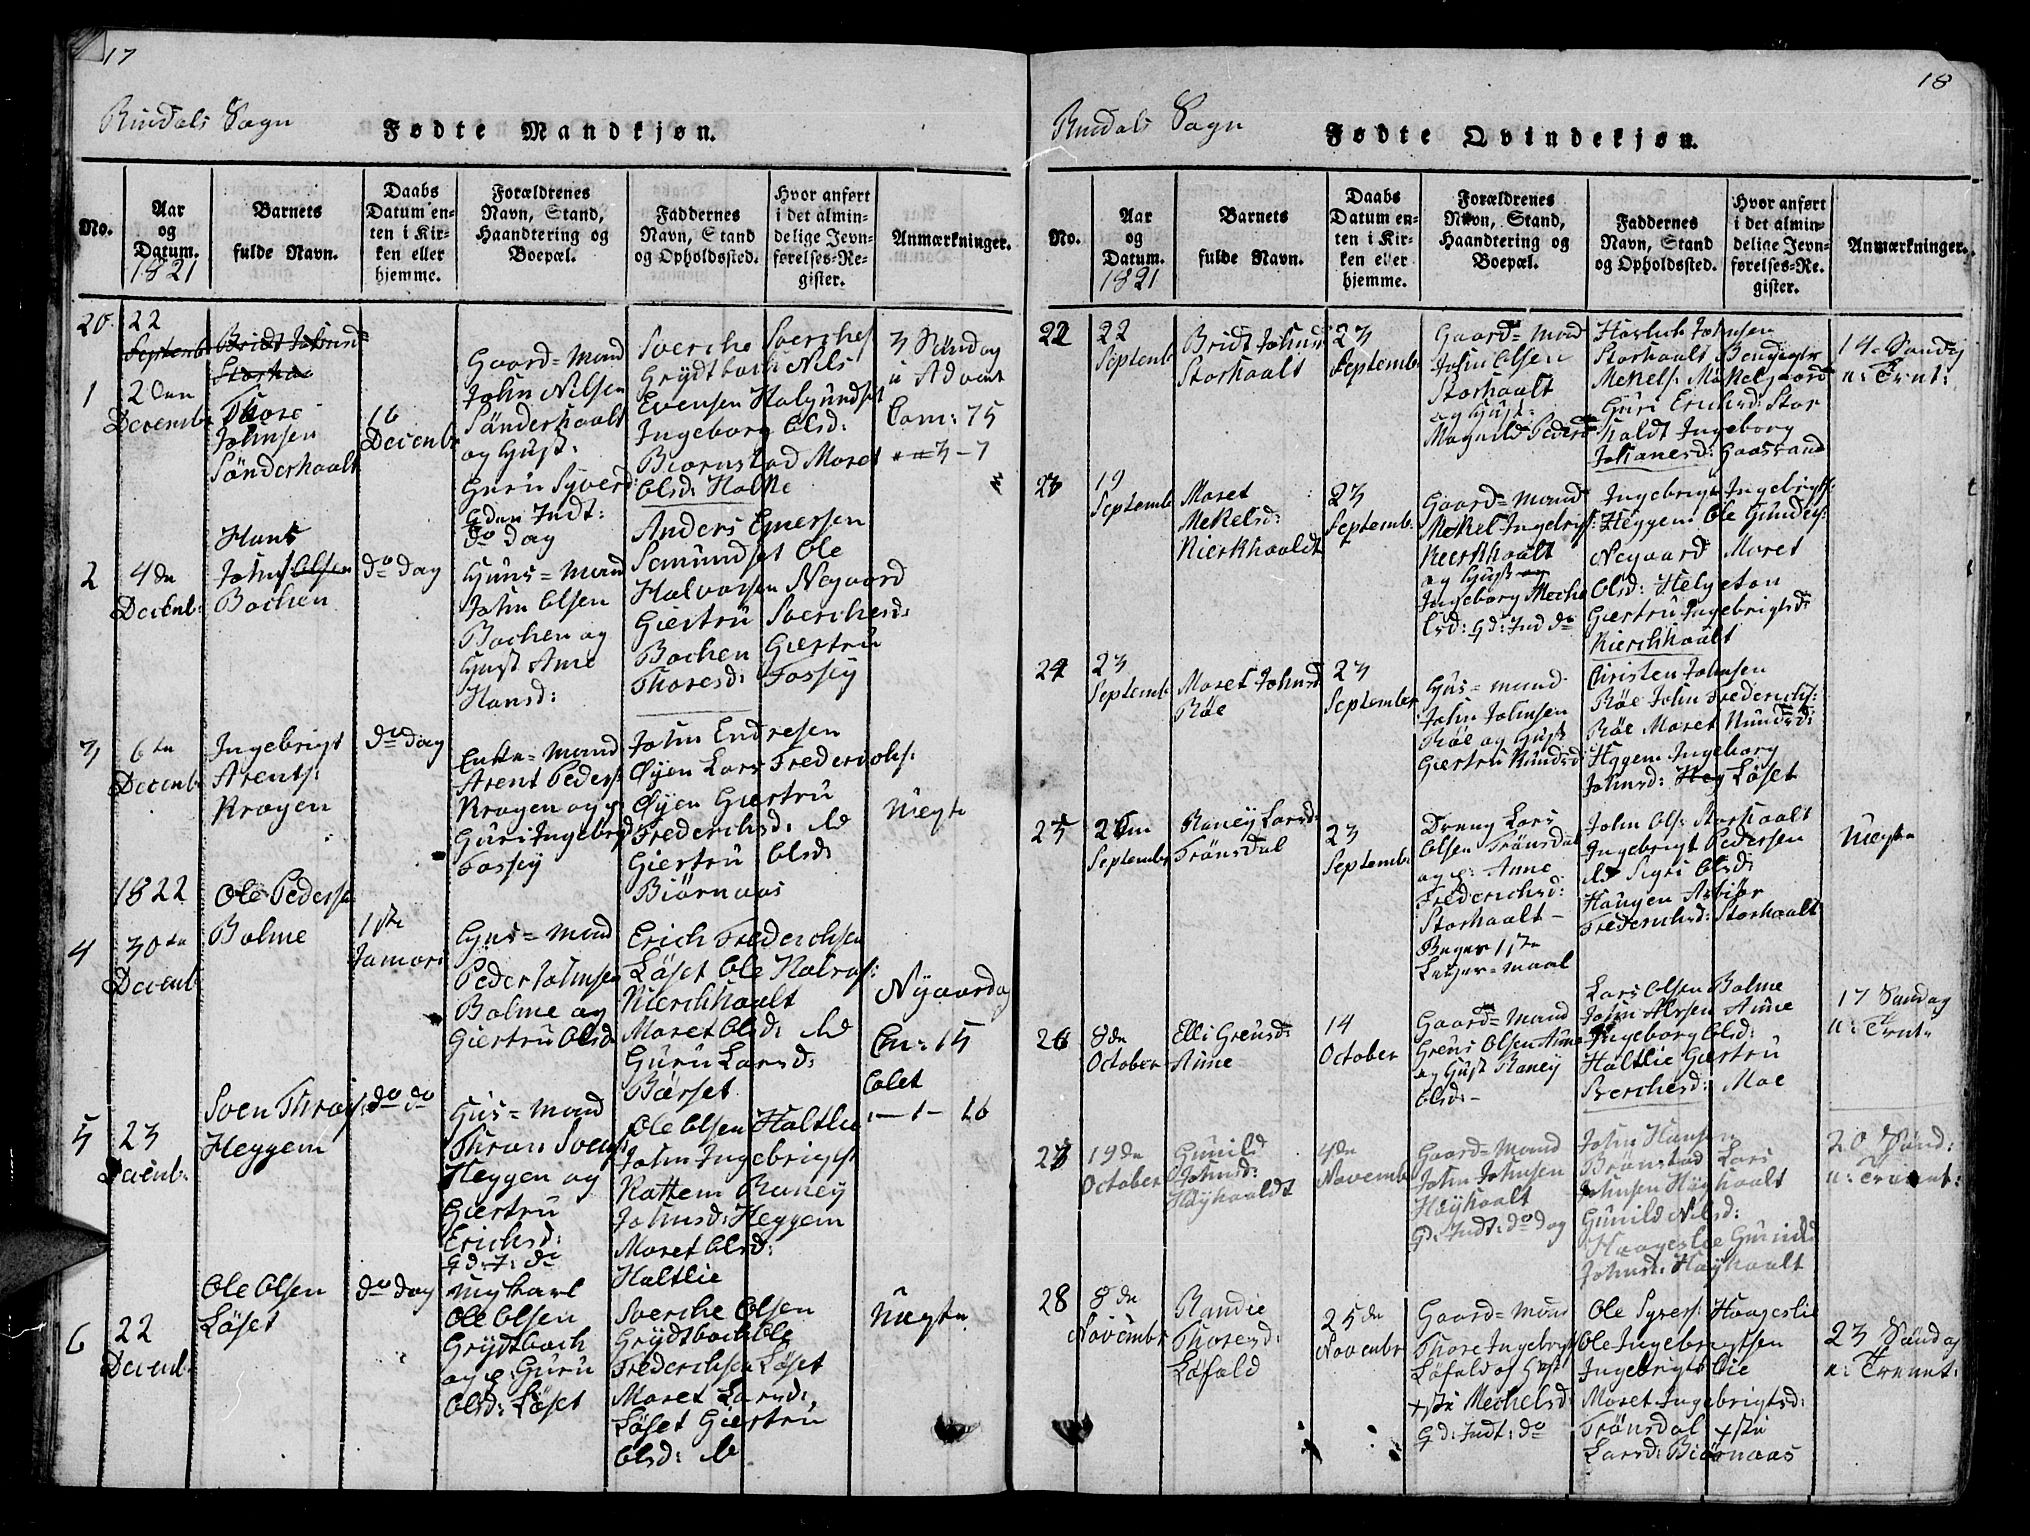 17
Rindals Sogn
Fødte Mandkjøn.
No.
Aar
og
Datum.
1821
Barnets
fulde Navn.
Daabs
Datum en-
ten i Kir-
ken eller
hjemme.
Forældrenes
Navn, Stand,
Haandtering og
Boepæl.
Faddernes
Navn, Stand
og Opholdssted.
Hvor anført
i det almin-
delige Jevn-
førelses-Re-
gister.
Anmærkninger.
20
22
Septemb
Bridt Johnsd
Storha
1
2den
Decembr
Thore
Johnsen
Sønderhaalt
16
Decembr
Gaard=Mand
John Nilsen
Sønderhaalt
og Hust:
Guru Syverd
Gden Indt:
do dag
Sverche Sverches
Grydtbach Nils
Evensen Halgundset
Ingeborg Olsd:
Biørnstad Maret
Olsd: Halte
3 Søndag
i Advent
Com: 75
3-7
2
4de
Decemb:
Hans
Johns Olsen
Bachen
do dag
Huus=Mand
John Olsen
Bachen og
Hust Ane
Hansd:
Anders Einersen
Semundset Ole
Halvorsen Negaard
Giertru Sverchesd:
Bachen Giertru
Thoresd: Fossey
3
6te
Decembr
Ingebrigt
Arents:
Kragen
do dag
Enke=Mand
Arent Peders:
Kragen og p:
Guri Ingebrsd
Fossey
John Endresen
Øyen Lars Frederichs:
Øyen Giertru
Frederichsd: do
Giertru Olsd:
Biørnaas
Uægte
1822
4
30te
Decemb
Ole Peders
Bolme
1ste
Januari
Huus=Mand
Peder Johnsen
Bolme og
Giertru Olsd
Erich Frederichsen
Løset Ole Halvos:
Kierchhaalt
Maret Olsd: do
Guru Larsd:
Børset
Nyaarsdag
Cm: 15
Calet
-1- 16
5
23
Decemb:
Sven Thrøns:
Heggem
do do
Huus=Mand
Thron Svends
Heggen og
Giertru
Erichsd:
Gd: I: do
Ole Olsen Haltlie
John Ingebrigts
Rattem Raney
Johnsd: Heggem
Maret Olsd:
Haltlie
6
22
Decemb:
Ole Olsen
Løset
do dag
Ungkarl
Ole Olsen
Grydtbach
og p: Guru
Olsd: Løset
Sverche Olsen
Grydtbach Ole
Frederichsen Løset
Maret Larsd:
Løset Giertru
Olsd: do
Uægte
18
Rindals Sogn
Fødte Qvindekjøn.
No.
Aar
og
Datum.
1821
Barnets
fulde Navn.
Daabs
Datum en-
ten i Kir-
ken eller
hjemme.
Forældrenes
Navn, Stand,
Haandtering og
Boepæl.
Faddernes
Navn, Stand
og Opholdssted.
Hvor anført
i det almin-
delige Jevn-
førelses-Re-
gister.
Anmærkninger.
22
22
Septemb
Bridt Johns
Storhaalt
23
Septembr
Gaard=Mand
John Olsen
Storhaalt
og Hust:
Magnild Pedersd
Johnsen
Storhaalt Bendigte
Mekels: Møkelgaard
Guri Erichsd: Stor
haldt Ingeborg
Johanesd: Gaasvand
14. Søndag
e: Trnt:
23
19
Septemb
Maret
Mekelsd:
Kierkhaaldt
23
Septemb:
Gaard=Mand
Mekel Ingebrigs:
Kierkhaalt
og Hust
Ingeborg Meche
lsd: Gd: Ind do
Ingebrigt Ingebrigts:
Heggem Ole Gundes:
Negaard Maret
Olsd: Helgeton
Giertru Ingebrigtsd:
Kierchhaalt
24
23
Septemb
Maret Johnsd
Røe
23
September
Huus=Mand
John Johnsen
Røe og Hust
Giertru Knudsd
Christen Johnsen
Røe John Frederichs:
Røe Maret Knudsd:
Heggem Ingeborg
Johnsd: Løset
25
Septembr
Raney Larsd:
Trønsdal
23
Septembr
Dreng Lars
Olsen Trønsdal
og p: Anne
Frederichsd:
Storhaalt-
Beges 1ste
Leyer=maal
John Ols: Storhaalt
Ingebrigt Pedersen
do Sigri Olsd:
Haugen
Frederichsd: Storhaalt
Uægte
26
8de
October
Elli Greusd:
Aune
14
October
Gaard=Mand
Greus Olsen Aune
og Hust Raney
Olsd-
Lars Olsen Bolme
John Aune
Ingeborg Olsd:
Haltlie Giertru
Sverchesd: Moe
17 Søndag
e: Trnt.
27
19de
October
Gunild
Johnsd:
Høyhaaldt
4de
Novembr
Gaard=Mand
John Johnsen
Høyhaalt
Gd: Indt: do dag
John Hansen
Brønstad Lars
Johnsen Høyhaalt
Gunild Nilsd:
Haageslie Gunild
Johnsd: Høyhaalt
20 Sønd:
e: Trenit:
28
8de
Novembr
Randie
Thoresd:
Løfald
25de
Novembr
Gaard=Mand
Thore Ingebrigts
Løfald og Hust
+sti Mechelsd:
Gd: Indt: do
Ole Syvers: Haageslie
Ole Ingebrigtsen
Ingebrigt Lie
Maret Ingebrigtsd:
Trønsdal +sti
Larsd: Biørnaas
23 Søndag
e: Trenit: